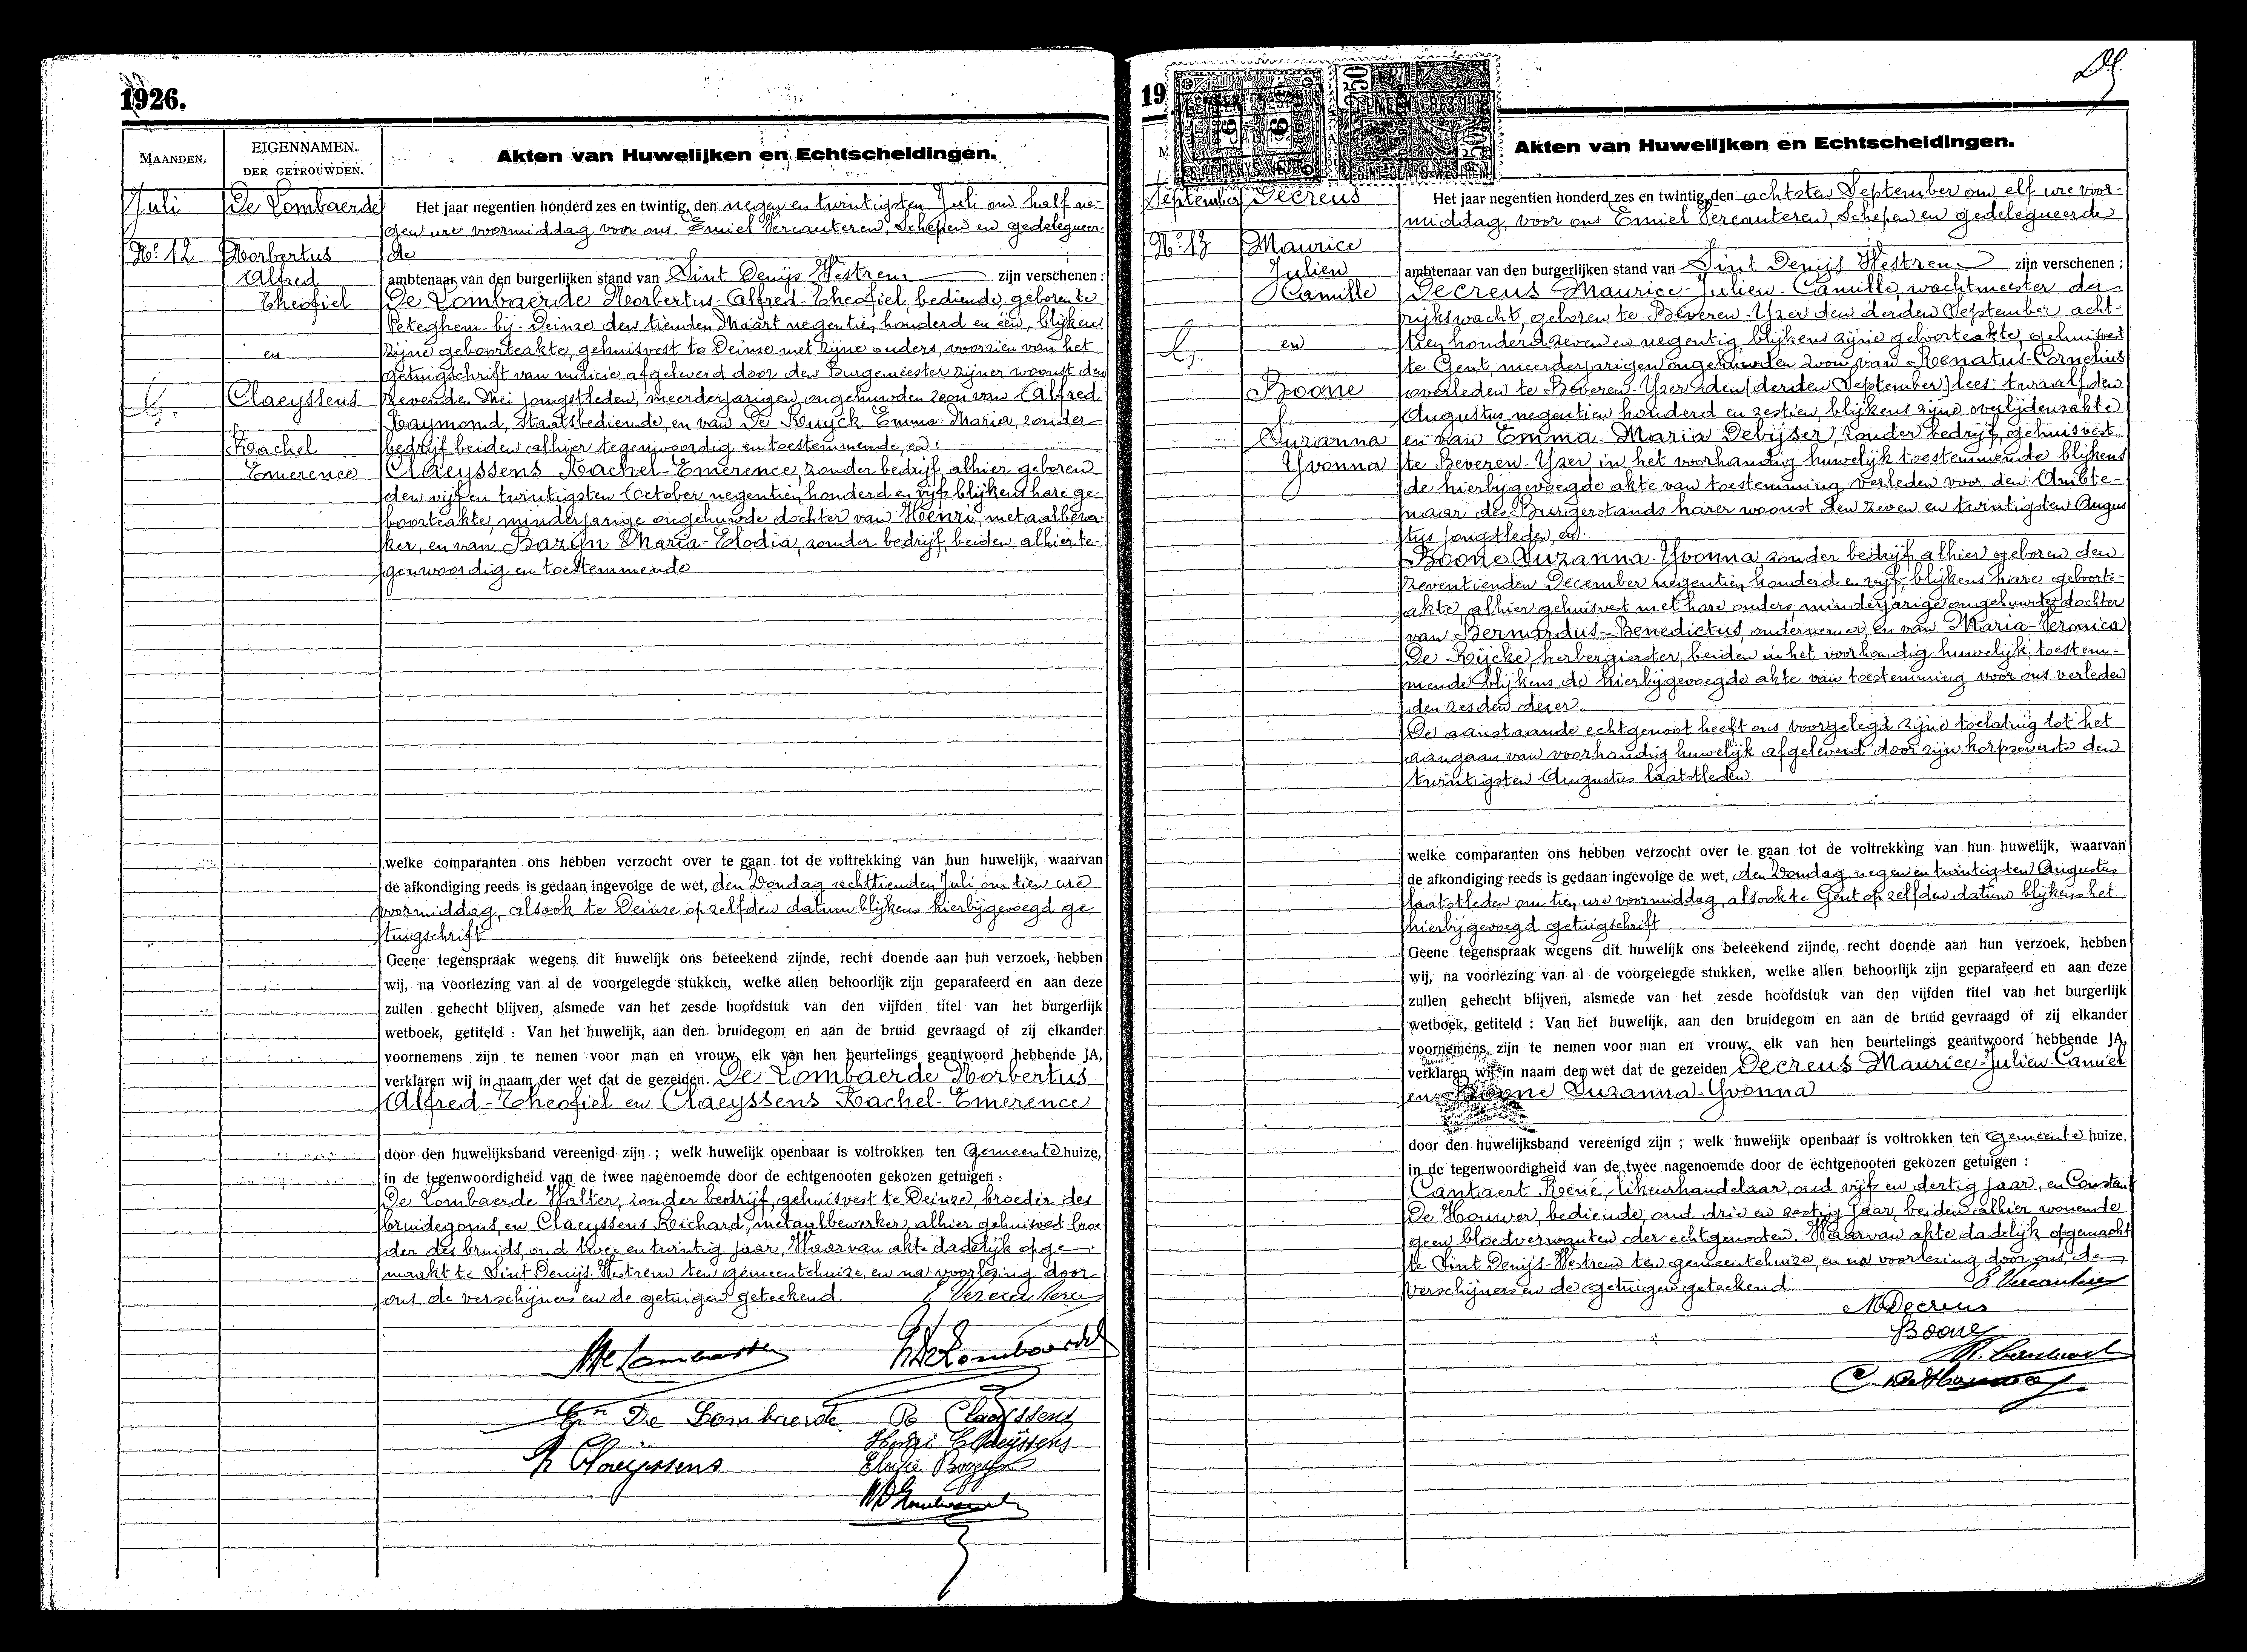 1926.
MAANDEN.
EIGENNAMEN.
DER GETROUWDEN.
Akten van Huwelijken en Echtscheidingen.
Juli
No. 12
De Lombaerde
Norbertus
Alfred
Theofiel
en
Claeyssens
Rachel
Emerence
Het jaar negentien honderd zes en twintig, den negen en twintigsten Juli om half ne-
gen ure voormiddag voor ons Emiel Vercauteren, Schepen en gedelegueer-
de
ambtenaar van den burgerlijken stand van Sint Denijs Westrem zijn verschenen :
De Lombaerde Norbertus-Alfred-Theofiel, bediende, geboren te
Peteghem-bij-Deinze den tienden Maart negentien honderd en één, blijkens
zijne geboorteakte, gehuisvest te Deinze met zijne ouders, voorzien van het
getuigschrift van milicie afgeleverd door den Burgemeester zijner woonst den
zevenden Mei jongstleden, meerderjarigen ongehuwden zoon van Alfred
Raymond, Staatsbediende, en van De Ruyck Emma-Maria, zonder
bedrijf beiden alhier tegenwoordig en toestemmende, en :
Claeyssens Rachel-Emerence, zonder bedrijf, alhier geboren
den vijf en twintigsten October negentien honderd en vijf blijkens hare ge-
boorteakte, minderjarige ongehuwde dochter van Henri, metaalbewer-
ker, en van Bazijn Maria-Elodia, zonder bedrijf, beiden alhier te-
genwoordig en toestemmende
welke comparanten ons hebben verzocht over te gaan tot de voltrekking van hun huwelijk, waarvan
de afkondiging reeds is gedaan ingevolge de wet, den Zondag achttienden Juli, om tien ure
voormiddag, alsook te Deinze op zelfden datum blijkens hierbijgevoegd ge
tuigschrift
Geene tegenspraak wegens dit huwelijk ons beteekend zijnde, recht doende aan hun verzoek, hebben
wij, na voorlezing van al de voorgelegde stukken, welke allen behoorlijk zijn geparafeerd en aan deze
zullen gehecht blijven, alsmede van het zesde hoofdstuk van den vijfden titel van het burgerlijk
wetboek, getiteld : Van het huwelijk, aan den bruidegom en aan de bruid gevraagd of zij elkander
voornemens zijn te nemen voor man en vrouw, elk van hen beurtelings geantwoord hebbende JA,
verklaren wij in naam der wet dat de gezeiden De Lombaerde Norbertus
Alfred-Theofiel en Claeyssens Rachel-Emerence
door den huwelijksband vereenigd zijn ; welk huwelijk openbaar is voltrokken ten Gemeentehuize,
in de tegenwoordigheid van de twee nagenoemde door de echtgenooten gekozen getuigen :
De Lombaerde Walter, zonder bedrijf, gehuisvest te Deinze, broeder des
bruidegoms, en Claeyssens Richard, metaalbewerker, alhier gehuisvest broe
der des bruids, oud twee en twintig jaar, Waarvan akte dadelijk opge-
maakt te Sint Denijs-Westrem ten gemeentehuize, en na voorlezing door
ons, de verschijners en de getuigen geteekend.
E Vercauteren
De Lombaerde
De Lombaerde
R Claeyssens
Henri Claeyssens
R Claeyssens
19
Akten van Huwelijken en Echtscheidingen.
September
No. 13
Decreus
Maurice
Julien
Camille
en
Boone
Suzanna
Yvonna
Het jaar negentien honderd zes en twintig, den achtsten September om elf ure voor-
middag, voor ons Emiel Vercauteren, Schepen en gedelegueerde
ambtenaar van den burgerlijken stand van Sint Denijs Westrem zijn verschenen :
Decreus Maurice-Julien-Camille, wachtmeester der
rijkswacht, geboren te Beveren-Yzer den derden September acht-
tien honderd zeven en negentig, blijkens zijne geboorteakte, gehuisvest
te Gent, meerderjarigen ongehuwden zoon van Renatus-Cornelius
overleden te Beveren-Yzer den (derden September) lees: twaalfden
Augustus negentien honderd en zestien, blijkens zijne overlijdensakte
en van Emma-Maria Debijser, zonder bedrijf, gehuisvest
te Beveren-Yzer, in het voorhandig huwelijk toestemmende blijkens
de hierbijgevoegde akte van toestemming verleden voor den Ambte-
naar des Burgerstands harer woonst den zeven en twintigsten Augus
tus jongstleden, en :
Boone Suzanna-Yvonna, zonder bedrijf, alhier geboren den
zeventienden December negentien honderd en vijf, blijkens hare geboorte-
akte, alhier gehuisvest met hare ouders, minderjarige ongehuwde dochter
van Bernardus-Benedictus, ondernemer, en van Maria-Veronica
De Rijcke, herbergierster, beiden in het voorhandig huwelijk toestem-
mende blijkens de hierbijgevoegde akte van toestemming voor ons verleden
den zesden dezer.
De aanstaande echtgenoot heeft ons voorgelegd zijne toelating tot het
aangaan van voorhandig huwelijk afgeleverd door zijn korpsoverste den
twintigsten Augustus laatstleden
welke comparanten ons hebben verzocht over te gaan tot de voltrekking van hun huwelijk, waarvan
de afkondiging reeds is gedaan ingevolge de wet, den Zondag negen en twintigsten Augustus
laatstleden om tien ure voormiddag, alsook te Gent op zelfden datum blijkens het
hierbijgevoegd getuigschrift
Geene tegenspraak wegens dit huwelijk ons beteekend zijnde, recht doende aan hun verzoek, hebben
wij, na voorlezing van al de voorgelegde stukken, welke allen behoorlijk zijn geparafeerd en aan deze
zullen gehecht blijven, alsmede van het zesde hoofdstuk van den vijfden titel van het burgerlijk
wetboek, getiteld : Van het huwelijk, aan den bruidegom en aan de bruid gevraagd of zij elkander
voornemens zijn te nemen voor man en vrouw, elk van hen beurtelings geantwoord hebbende JA,
verklaren wij in naam der wet dat de gezeiden Decreus Maurice-Julien-Camiel
en Boone Suzanna-Yvonna
door den huwelijksband vereenigd zijn ; welk huwelijk openbaar is voltrokken ten Gemeentehuize.
in de tegenwoordigheid van de twee nagenoemde door de echtgenooten gekozen getuigen :
Cantaert René, likeurhandelaar, oud vijf en dertig jaar, en Constant
De Houwer, bediende, oud drie en zestig jaar, beiden alhier wonende
geen bloedverwanten der echtgenooten. Waarvan akte dadelijk opgemaakt
te Sint Denijs-Westrem ten gemeentehuize, en na voorlezing door ons, de
verschijners en de getuigen geteekend
E Vercauteren
M Decreus
Boone